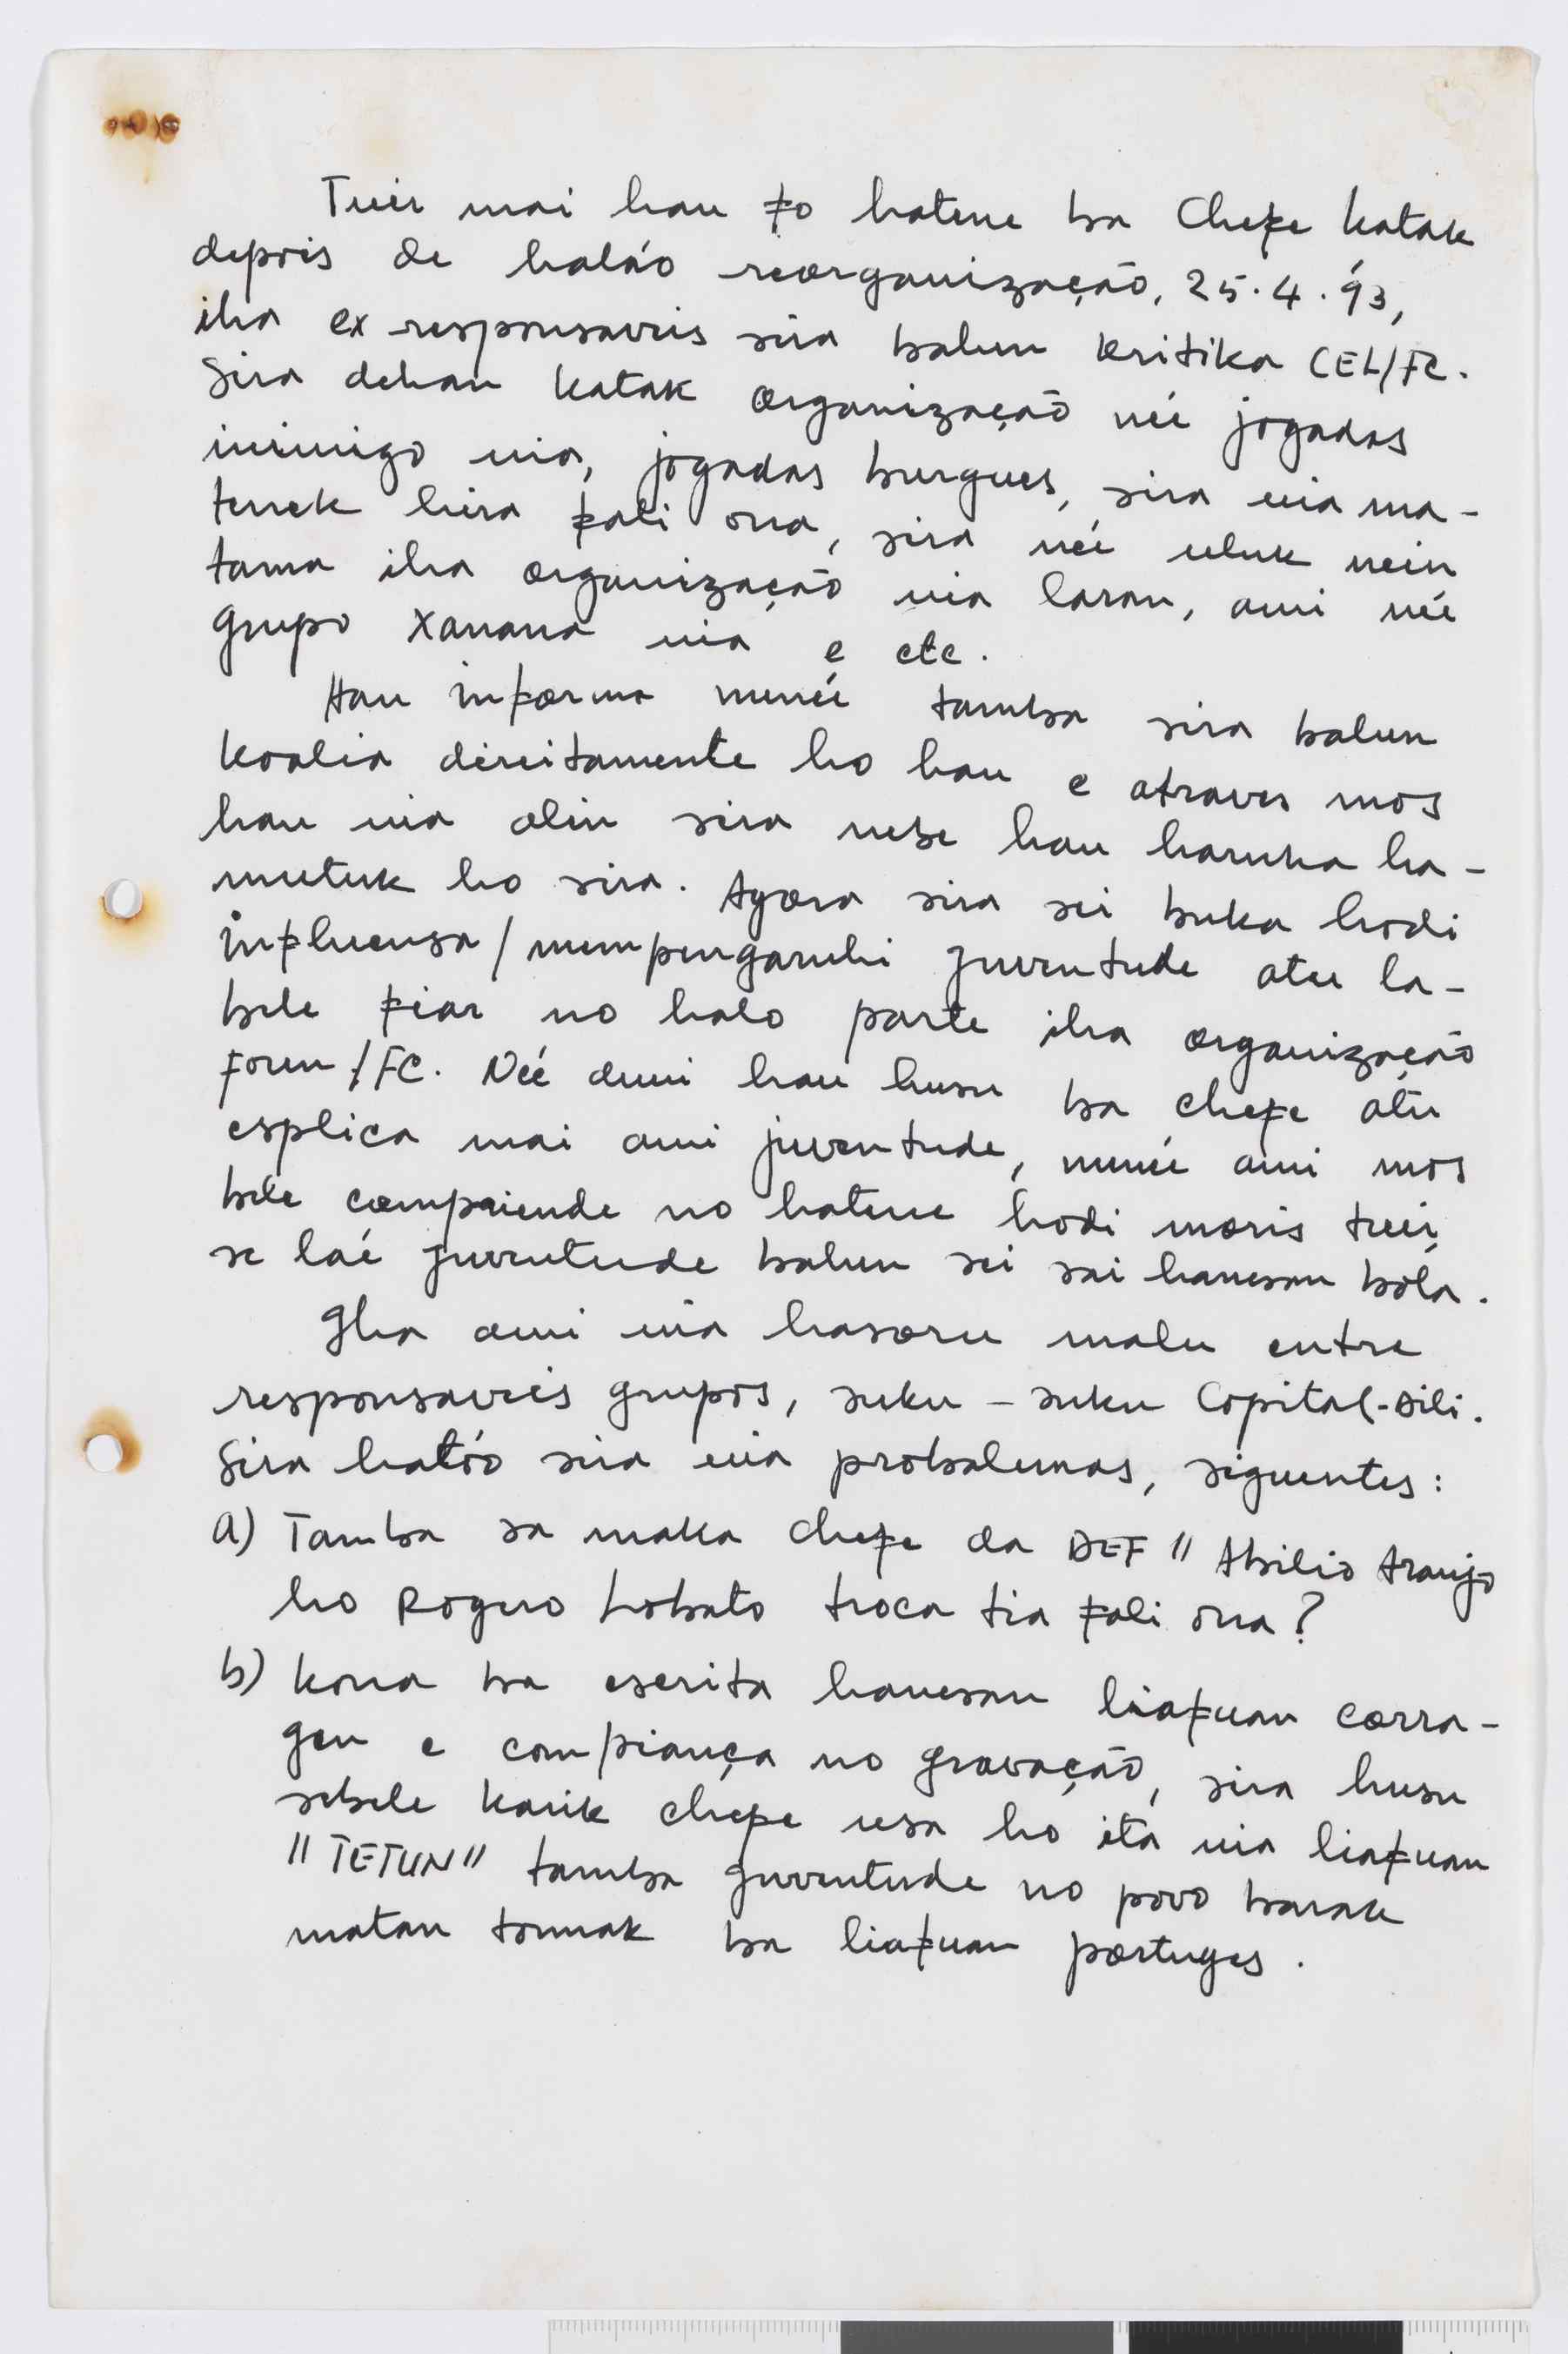 Tuir mai hau fo hatene ba Chefe katak
depois de haláo reorganização, 25.4.93,
iha ex responsaveis sira balun kritika CEL/FC.
Sira dehan katak organização neé jogadas
inimigo nia, jogadas burgues, sira nia ma-
tenek hira fali ona, sira neé uluk nein
tama iha organização nia laran, ami neé
grupo Xanana nia e etc.
Hau informa nuneé tamba sira balun
koalia direitamente ho hau e atraves mos
hau nia alin sira nebe hau haruka ha-
mutuk ho sira. Agora sira sei buka hodi
influensa / mempengaruhi juventude atu la-
bele fiar no halo parte iha organização
foun /FC. Neé duni hau husu ba chefe atu
esplica mai ami juventude, nuneé ami mos
bele compriende no hatene hodi moris tuir,
se laé juventude balun sei sai hanesan bóla.
Iha ami nia hasoru malu entre
responsaveis grupos, suku - suku Capital-Dili.
Sira hatóo sira nia probalemas, siguentes:
a) Tamba sa maka chefe da DEF " Abilio Araujo
ho Rogerio Lobato troca tia fali ona?
b) kona ba escrita hanesan liafuan corra-
gen e confiança no gravação, sira husu
sebele karik chefe usa ho ita nia liafuan
"TETUN" tamba juventude no povo barak
matan tomak ba liafuan portuges.